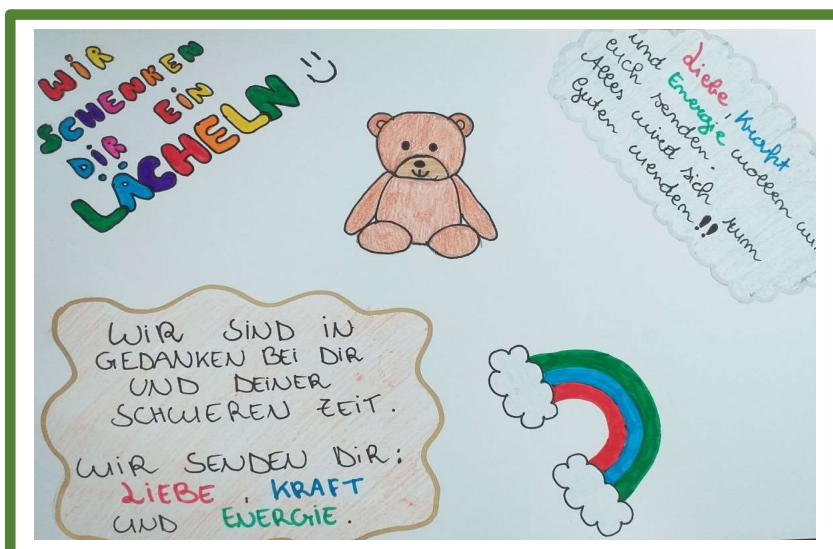 WIR
SCHENKEN
DIR EIN
LÄCHELN
Liebe, Kraft
und Energie wollem
euch senden.
Alles wird sich zum
Guten wendem!!
WIR SIND IN
GEDANKEN BEI DIR
UND DEINER
SCHWEREN ZEIT.
WIR SENDEN DIR:
LIEBE, KRAFT
UND ENERGIE.